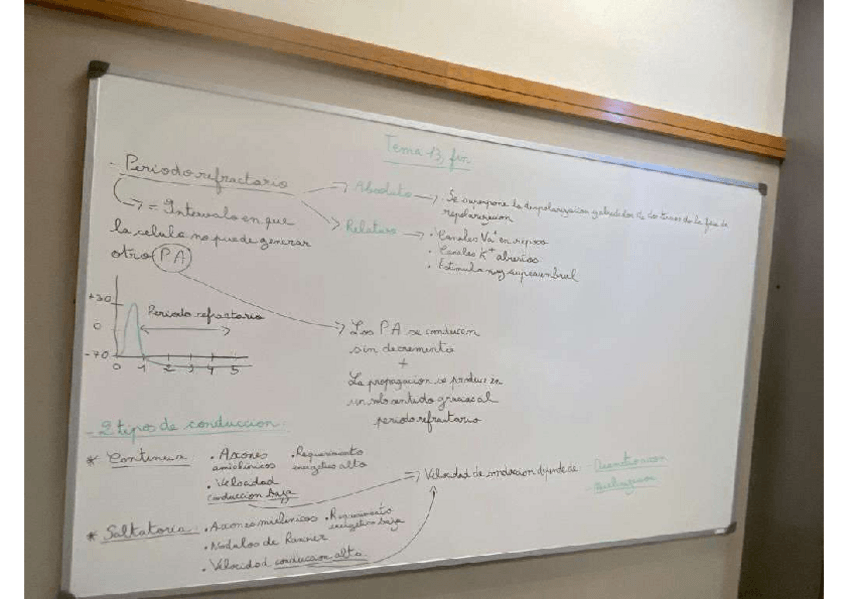 Tema 13, fin
- Periodo refractario
→ = Intervalo en que
la celula no puede generar
otro PA
⇒ Absoluto → · Se superpone la despolarizacion y alrededor de dos tercios de la fase de
repolarizacion
⇒ Relativo → · Canales Na+ en reposo
· Canales K+ abiertos
· Estimulo supraumbral
+30
0
-70
Periodo refractario
0 1 2 3 4 5
⇒ Los PA se conducen
sin decremento
+
La propagacion se produce en
un solo sentido gracias al
periodo refractario
- 2 tipos de conduccion
* Continua · Axones
amielinicos
· Requerimiento
energetico alto
· Velocidad
conduccion baja
* Saltatoria · Axones mielinicos
· Requerimiento
energetico bajo
· Nodulos de Ranvier
· Velocidad conduccion alta
⇒ Velocidad de conduccion depende de